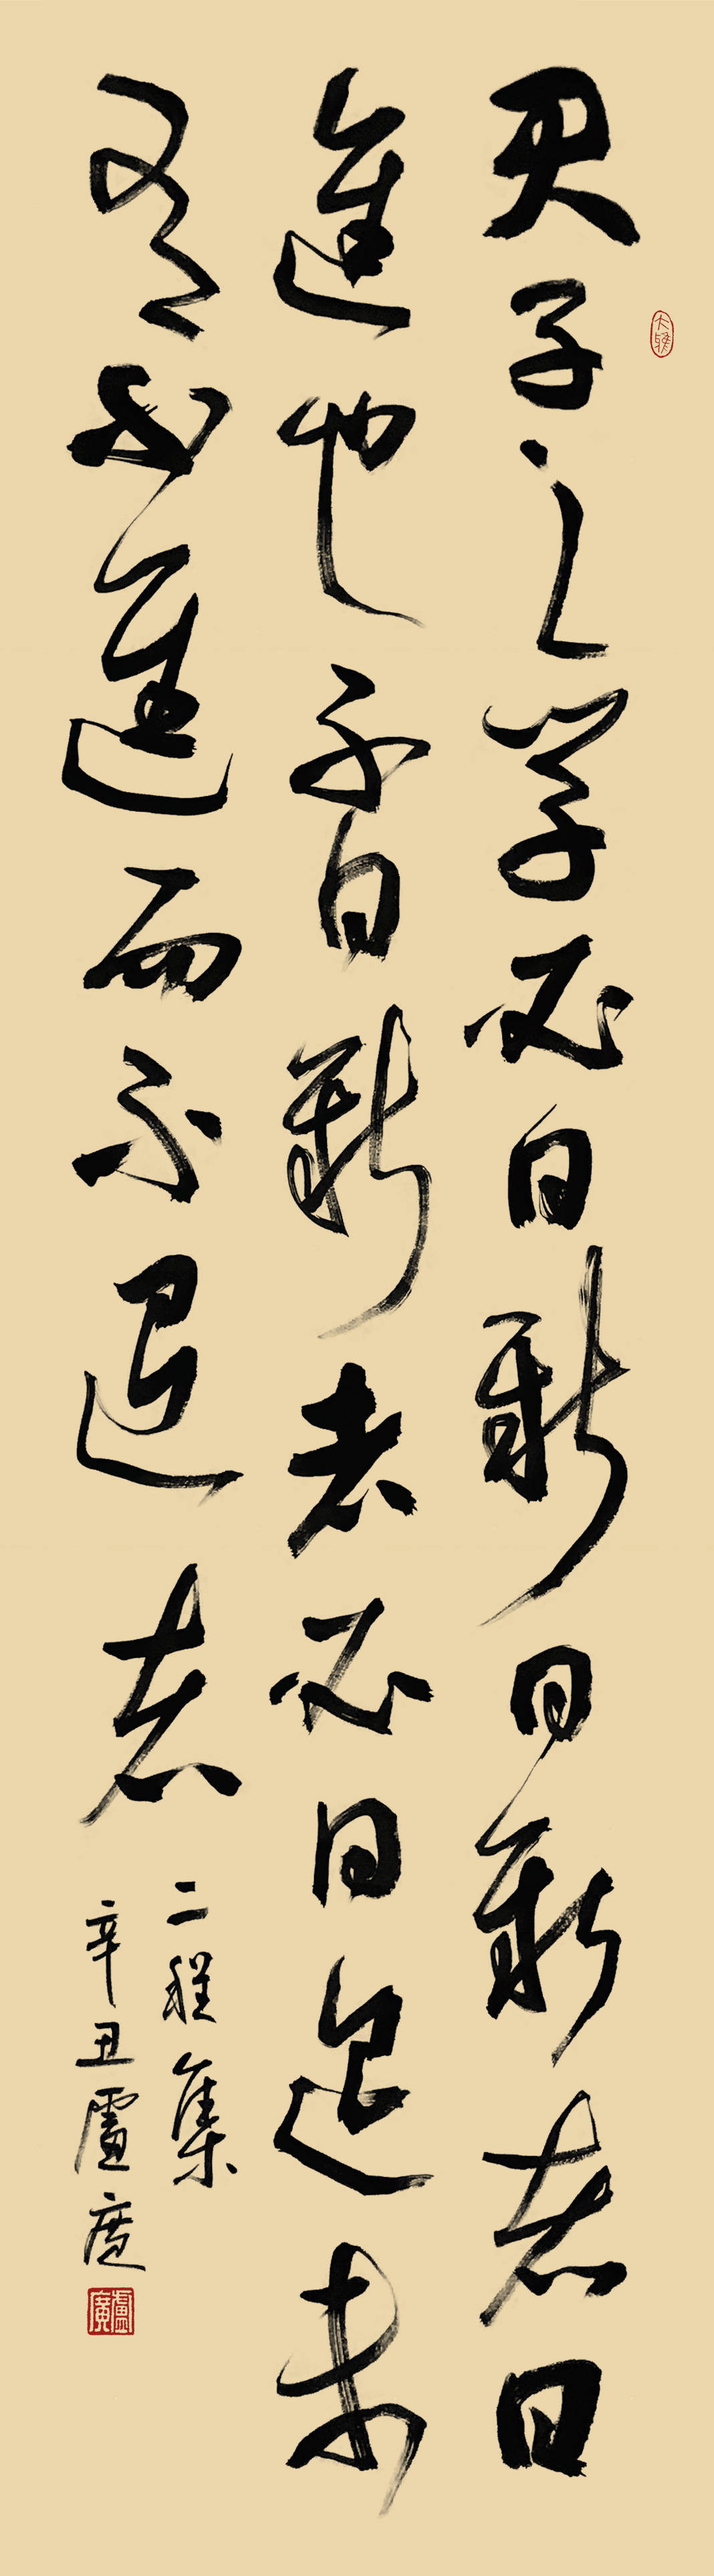 君子之学必日新日新者日
進也不日新者必日退未
有不進而不退者
二程集
辛丑盧廣
盧廣
大雅